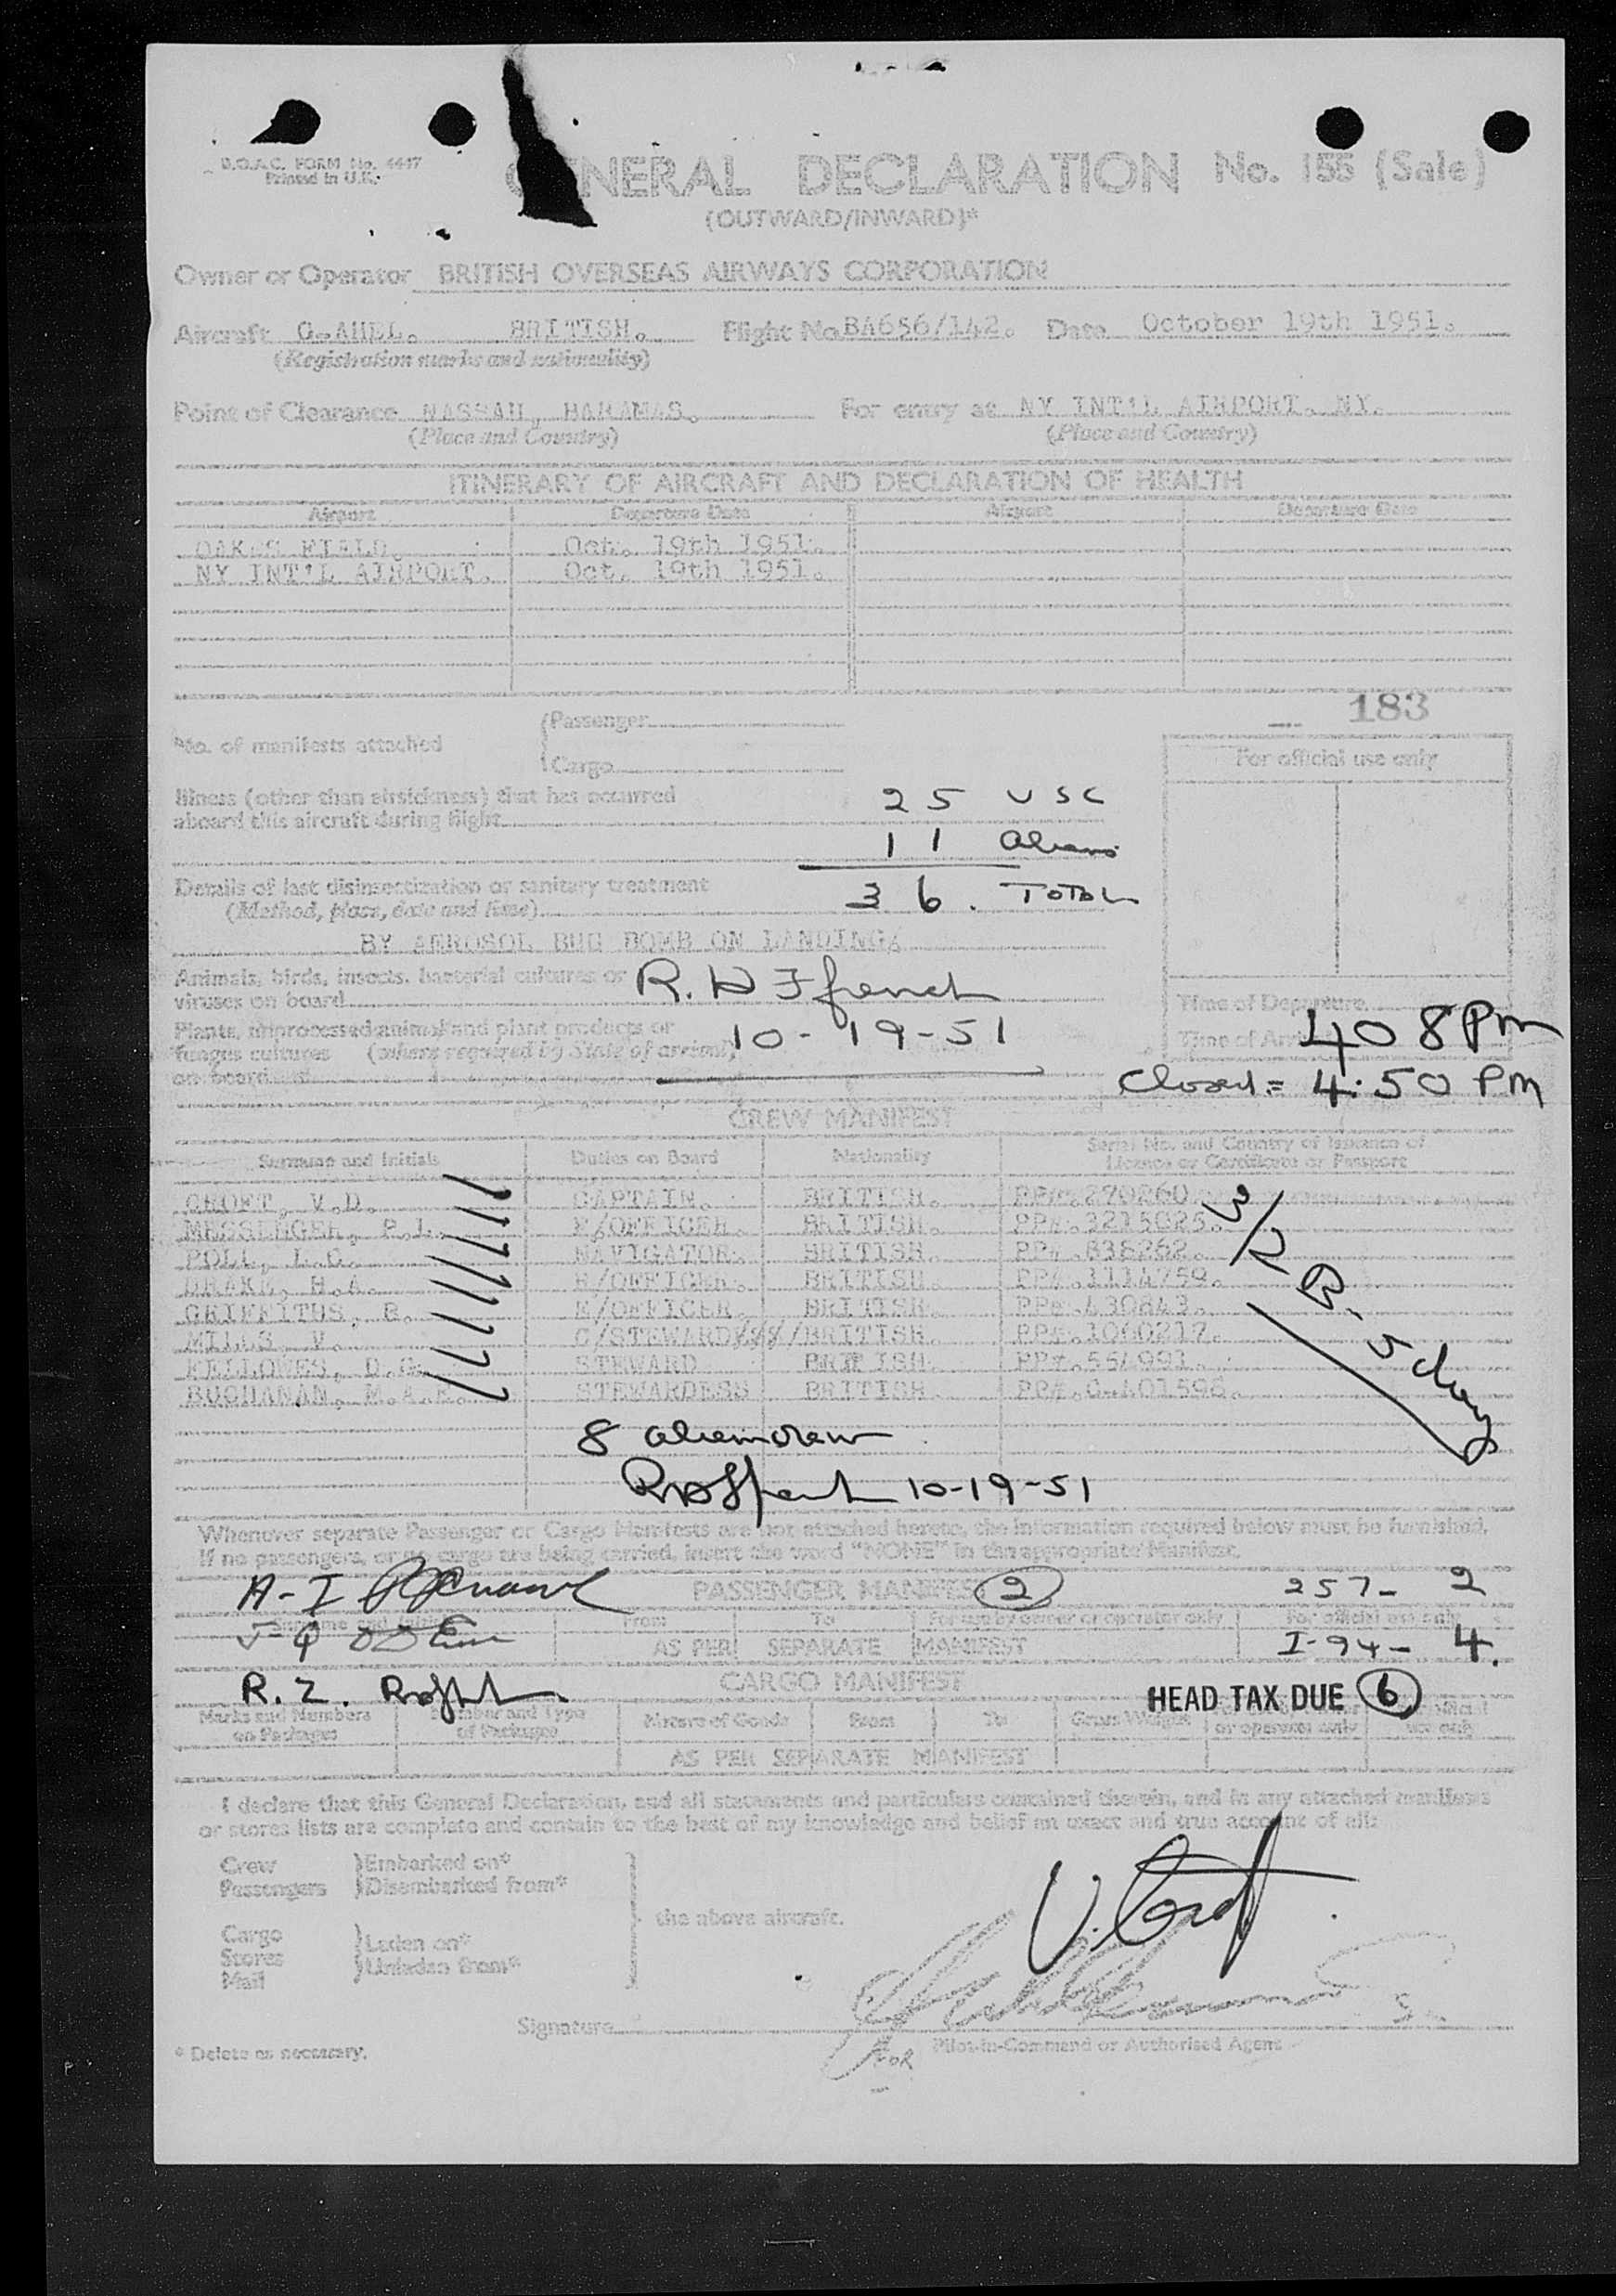 B.O.A.C. FORM No. 4447
Printed in U.K.
GENERAL DECLARATION No. 155 (Sale)
(OUTWARD/INWARD)*
Owner or Operator BRITISH OVERSEAS AIRWAYS CORPORATION
Aircraft BRITISH. Flight No. BA656/142. Date October 19th 1951.
(Registration marks and nationality)
Point of Clearance NASSAU, BAHAMAS. For entry at NY INT'L AIRPORT. NY.
(Place and Country) (Place and Country)
ITINERARY OF AIRCRAFT AND DECLARATION OF HEALTH
Airport Departure Date Airport Departure Date
OAKES FIELD. Oct. 19th 1951.
NY INT'L AIRPORT. Oct. 19th 1951.
183
No. of manifests attached
Passenger
Cargo
For official use only
Illness (other than airsickness) that has occurred
aboard this aircraft during flight
25 USC
11 Aliens
36. TOTAL
Details of last disinsectization or sanitary treatment
(Method, place, date and time)
BY AEROSOL BUG BOMB ON LANDING
Animals, birds, insects, bacterial cultures or
viruses on board
Plants, unprocessed animal and plant products or
fungus cultures (where required by State of arrival)
on board
10-19-51
Time of Departure
408 Pm
Closed = 4:50 PM
CREW MANIFEST
Surname and Initials Duties on Board Nationality Serial No. and Country of Issuance of
Licence or Certificate or Passport
CROFT, V.D. CAPTAIN. BRITISH. PP#.270260
MESSENGER, P.L. F/OFFICER. BRITISH. PP#.3215025.
POLL, L.C. NAVIGATOR. BRITISH. PP#.838262.
DRAKE, H.A. R/OFFICER. BRITISH. PP#.1114759.
GRIFFITHS, B. E/OFFICER. BRITISH. PP#.430843.
MILLS V. C/STEWARD BRITISH. PP#.1060217.
FELLOWES, D.G. STEWARD BRITISH PP#.554991.
BUCHANAN, M.A.E. STEWARDESS BRITISH PP#.C.401598.
8 alien crew
10-19-51
Whenever separate Passenger or Cargo Manifests are not attached hereto, the information required below must be furnished.
If no passengers, or no cargo are being carried, insert the word "NONE" in the appropriate Manifest.
A-I PASSENGER MANIFEST 2 257- 2
From To For use by owner or operator only For official use only
AS PER SEPARATE MANIFEST I-94- 4.
CARGO MANIFEST
R.Z. HEAD TAX DUE 6
Marks and Numbers
on Packages
Number and Type
of Packages
Nature of Goods From To Gross Weight
AS PER SEPARATE MANIFEST
I declare that this General Declaration, and all statements and particulars contained therein, and in any attached manifests
or stores lists are complete and contain to the best of my knowledge and belief an exact and true account of all:
Crew
Passengers
Embarked on*
Disembarked from*
the above aircraft.
Cargo
Stores
Mail
Laden on*
Unladen from*
V. Croft
Signature
FOR Pilot-in-Command or Authorised Agent
* Delete as necessary.